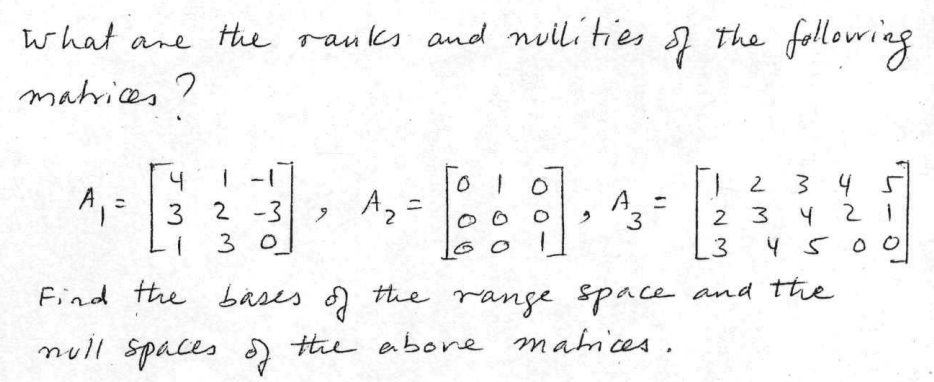 What are the ranks and nullities of the following
matrices?
A₁ = [4 1 -1; 3 2 -3; 1 3 0], A₂ = [0 1 0; 0 0 0; 0 0 1], A₃ = [1 2 3 4 5; 2 3 4 2 1; 3 4 5 0 0]
Find the bases of the range space and the
null spaces of the above matrices.